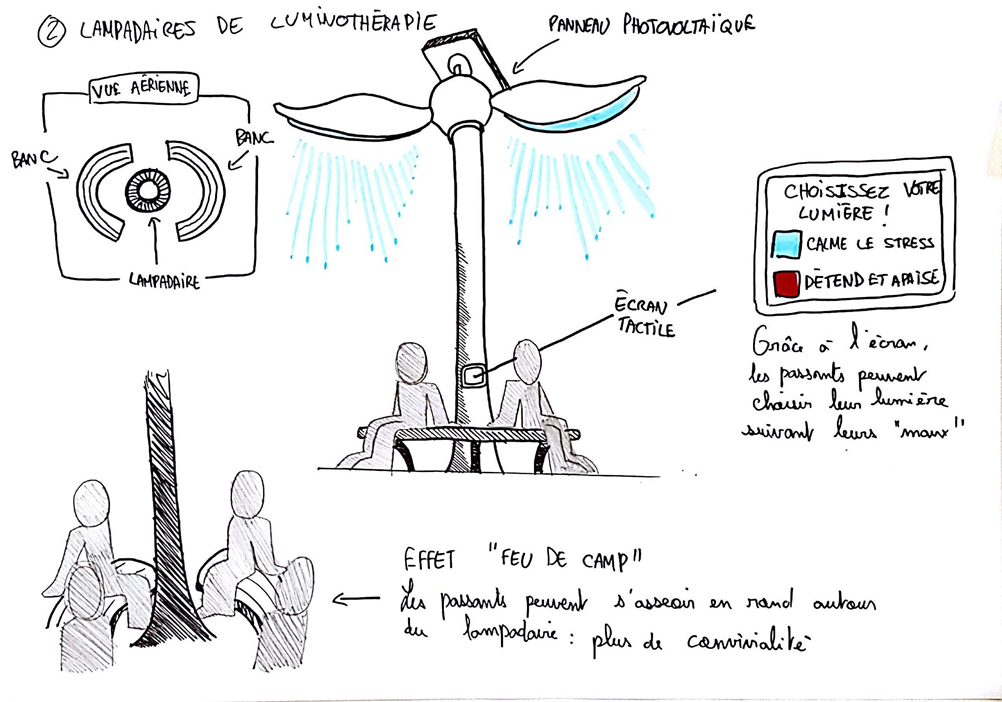 ② LAMPADAIRES DE LUMINOTHÉRAPIE
PANNEAU PHOTOVOLTAÏQUE
VUE AÉRIENNE
BANC
BANC
LAMPADAIRE
CHOISISSEZ VOTRE
LUMIÈRE !
CALME LE STRESS
DÉTEND ET APAISE
ÉCRAN
TACTILE
Grâce à l'écran,
les passants peuvent
choisir leur lumière
suivant leurs "maux"
EFFET "FEU DE CAMP"
Les passants peuvent s'asseoir en rond autour
du lampadaire : plus de convivialité